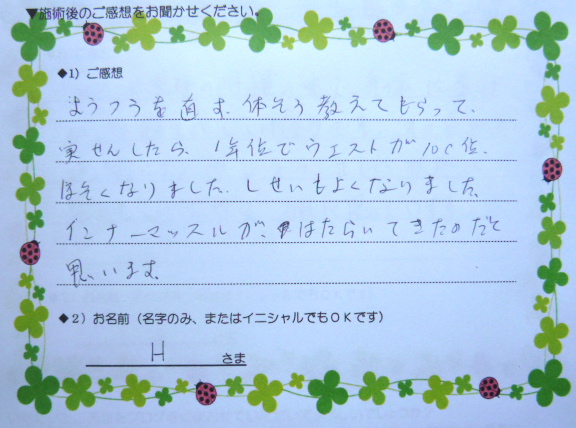 ▼施術後のご感想をお聞かせください。
◆1）ご感想
ようつうを直す、体そう教えてもらって、
実せんしたら、1年位でウエストが10c位、
ほそくなりました。しせいもよくなりました。
インナーマッスルが、はたらいてきたのだと
思います。
◆2）お名前（名字のみ、またはイニシャルでもOKです）
H さま